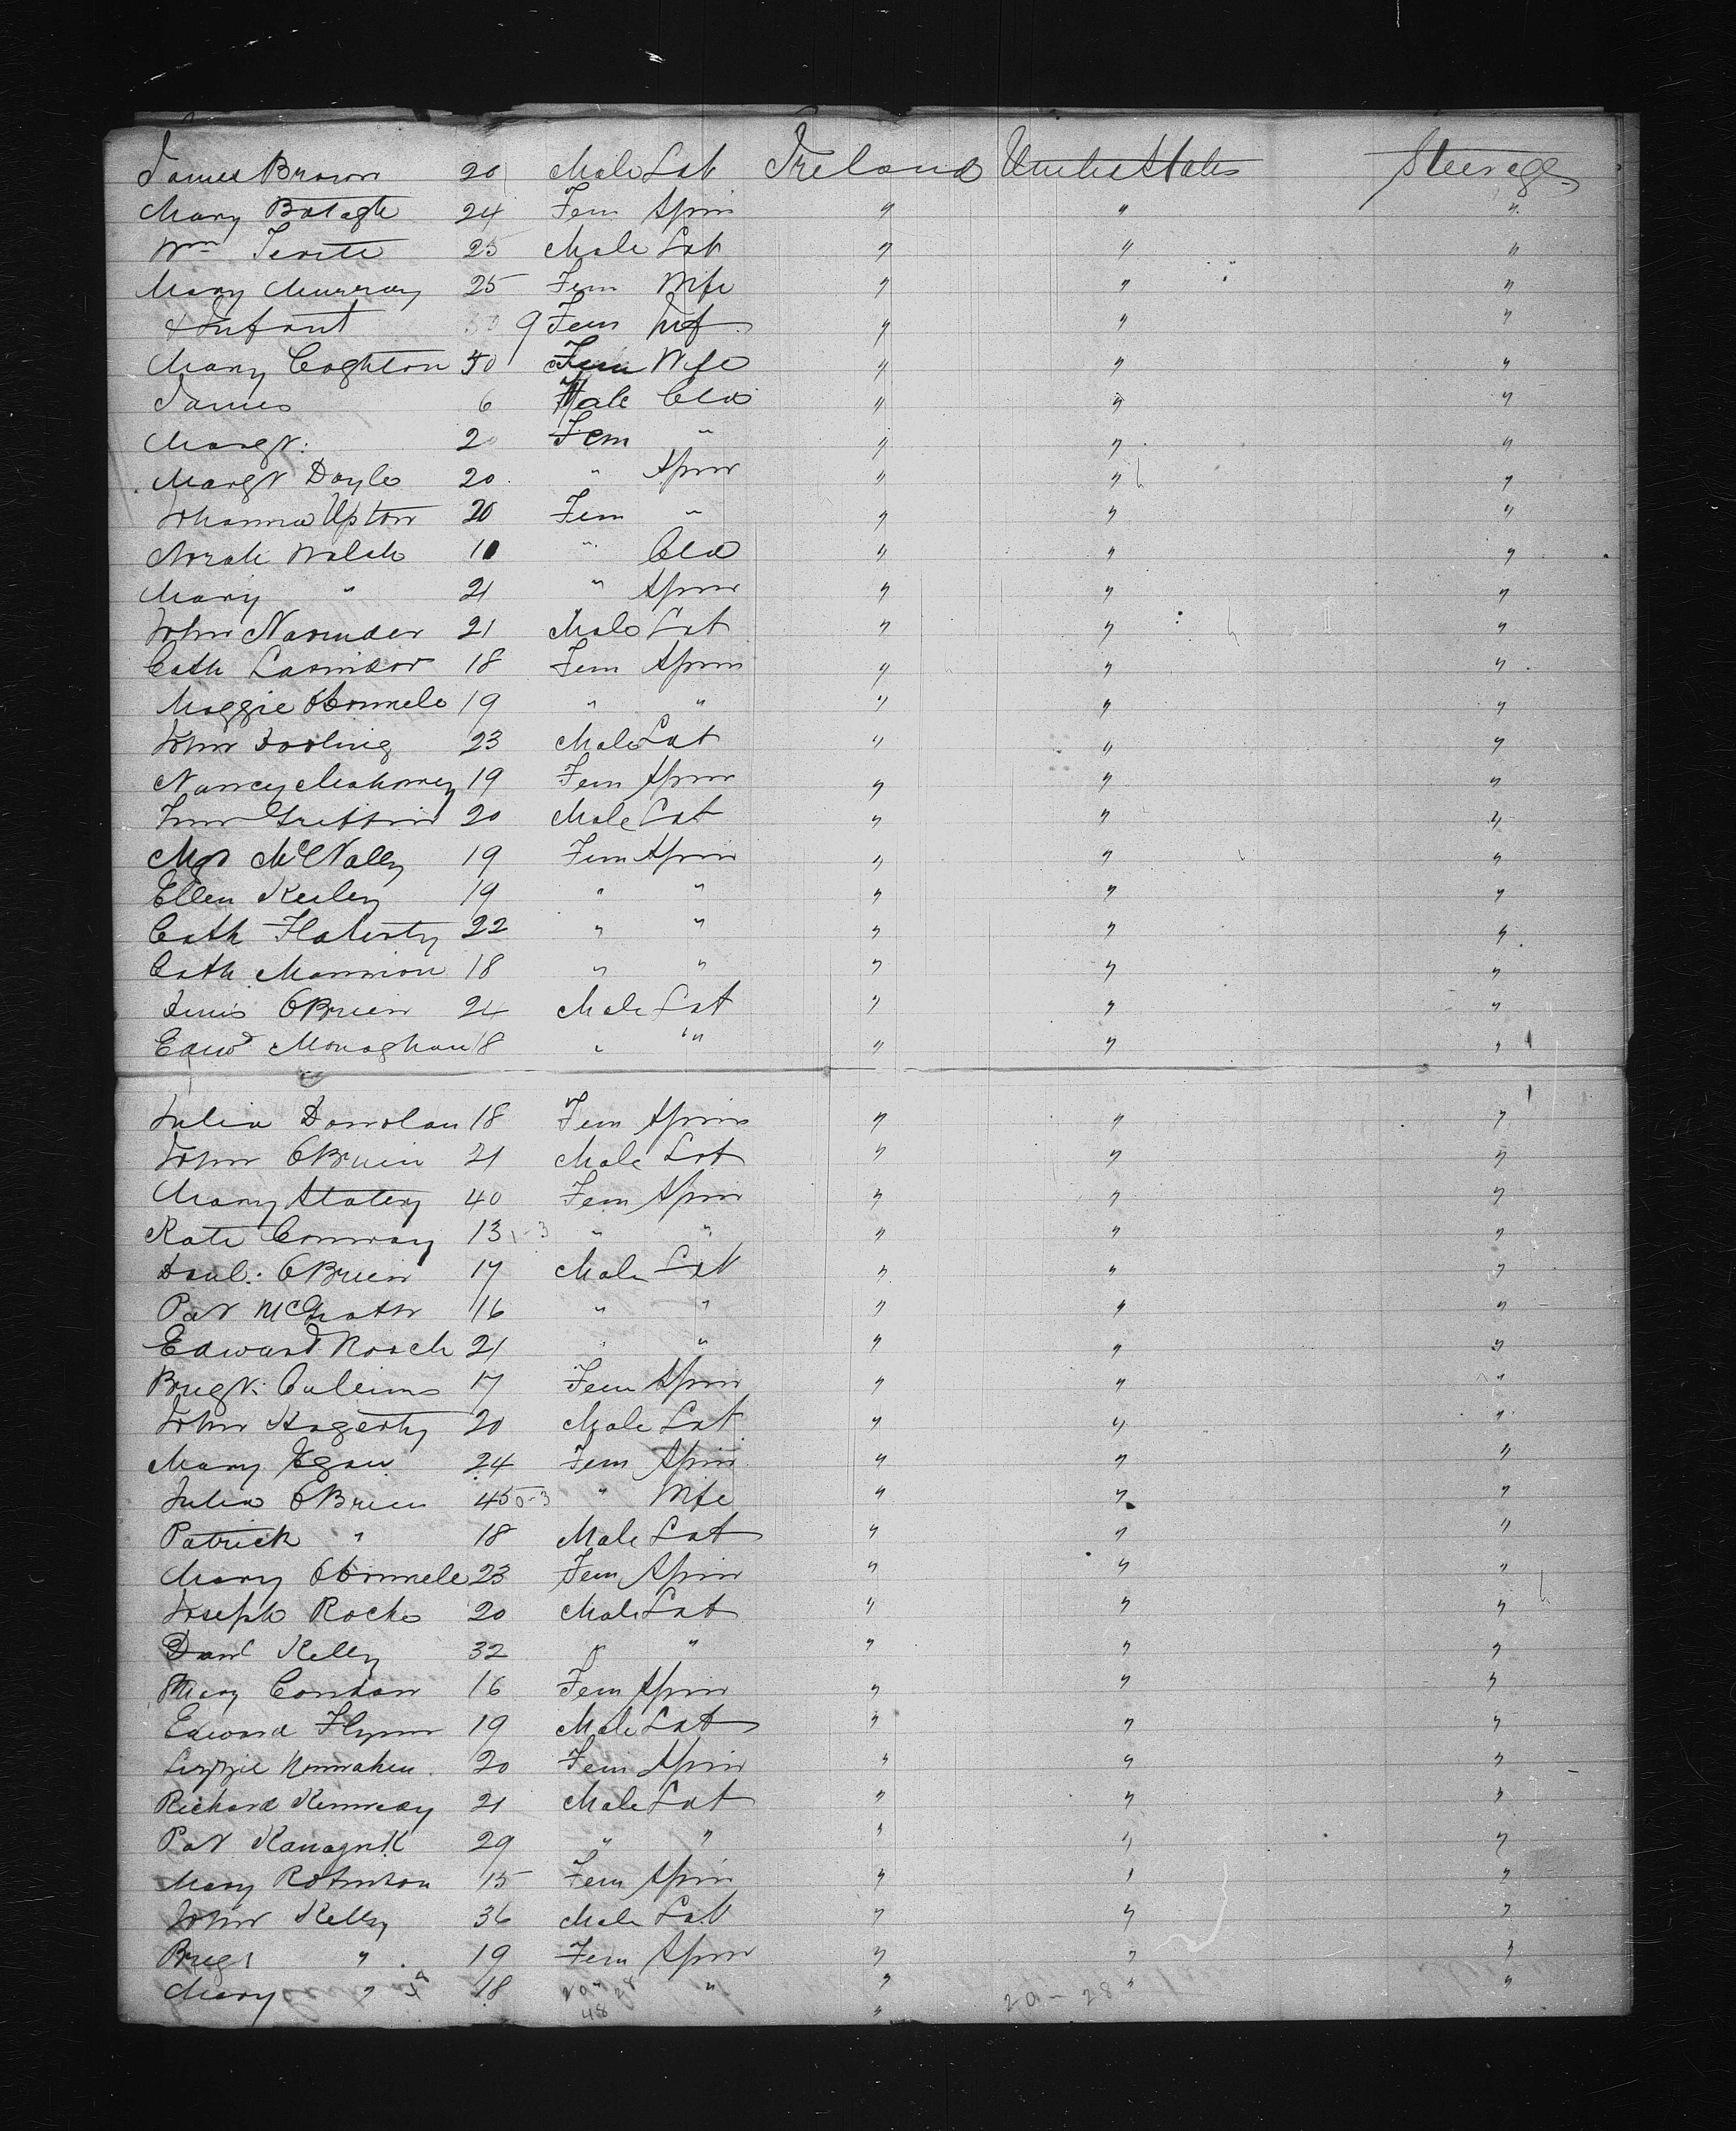 James Brown 20 Male Lab Ireland United States Steerage
Mary 24 Fem Spin " " "
Wm 25 Male Lab " " "
Mary Murray 25 Fem Wife " " "
& Infant 9 Fem Inf " " "
Mary Coghlon 30 Fem Wife " " "
James 6 Male Cld " " "
Margt. 20 Fem " " " "
Margt Doyle 20 " Spin " " "
Johanna Upton 20 Fem " " " "
Norah Walsh 10 " Cld " " "
Mary " 21 " Spin " " "
John 21 Male Lab " " "
Cath 18 Fem Spin " " "
Maggie OConnele 19 " " " " "
John Dooling 23 Male Lab " " "
Nancy Mahoney 19 Fem Spin " " "
Griffin 20 Male Lab " " "
Mgt McNally 19 Fem Spin " " "
Ellen Keiley 19 " " " " "
Cath Flaherty 22 " " " " "
Cath Mannion 18 " " " " "
Denis OBrien 24 Male Lab " " "
Edwd Monaghan 18 " " " " "
Julia Donolan 18 Fem Spin " " "
John OBrien 21 Male Lab " " "
Mary Slatery 40 Fem Spin " " "
Kate Conway 13 " " " " "
Danl. OBrien 17 Male Lab " " "
Pat McGrath 16 " " " " "
Edward Roach 21 " " " " "
Brigt. 17 Fem Spin " " "
John Hagerty 20 Male Lab " " "
Mary Egan 24 Fem Spin " " "
Julia OBrien 45 " Wife " " "
Patrick " 18 Male Lab " " "
Mary OConnele 23 Fem Spin " " "
Joseph Roche 20 Male Lab " " "
Danl Kelly 32 " " " " "
Mary Condon 16 Fem Spin " " "
Edward Flynn 19 Male Lab " " "
Lizzie 20 Fem Spin " " "
Richard Kennedy 21 Male Lab " " "
Pat 29 " " " " "
Mary Robinson 15 Fem Spin " " "
John Kelly 36 Male Lab " " "
Brigt " 19 Fem Spin " " "
Mary " 18 " " " " "
48 " 20 - 28